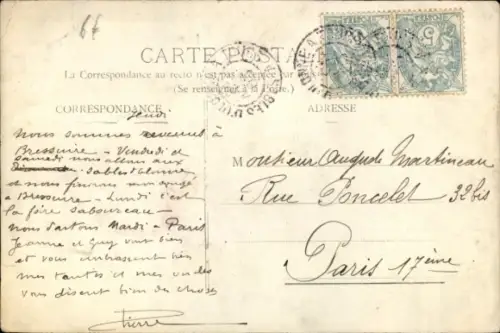 6f
CARTE POSTALE
La Correspondance au recto n'est pas acceptée par
(Se renseigner à la Poste.)
CORRESPONDANCE
ADRESSE
Jeudi
Nous sommes revenus à
Bressuire - Vendredi et
samedi nous allons aux
Sables d'Olonne,
et nous finirons
à Bressuire - Lundi c'est
la foire
Nous partons Mardi à Paris
Jeanne et Guy vont bien
et vous embrassent bien
mes tantes et mes oncles
vous disent bien des choses
Pierre
Monsieur Auguste Martineau
Rue Poncelet 32 bis
Paris 17ème